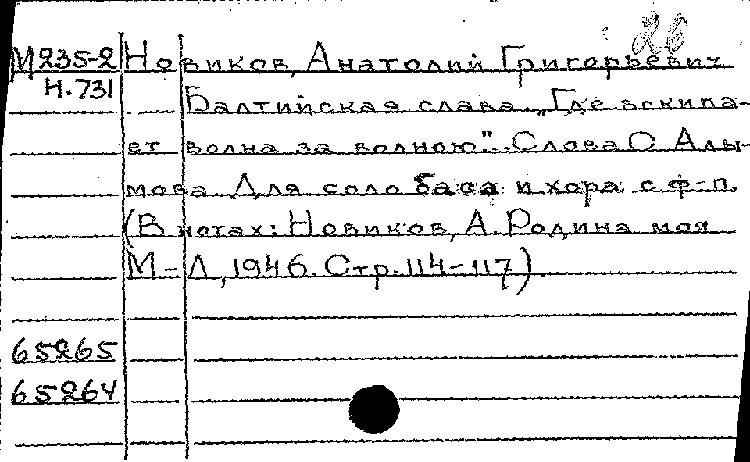 26
М235-2 Новиков, Анатолий Григорьевич
Н.731
Балтийская слава. „Где вскипа-
ет волна за волною"... Слова С. Алы-
мова. Для соло баса и хора с ф-п.
(В нотах: Новиков, А. Родина моя.
М-Л, 1946. Стр. 114-117)
65265
65264